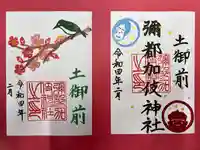 土御前
令和四年
二月
土御前
彌都加伎神社
令和四年二月